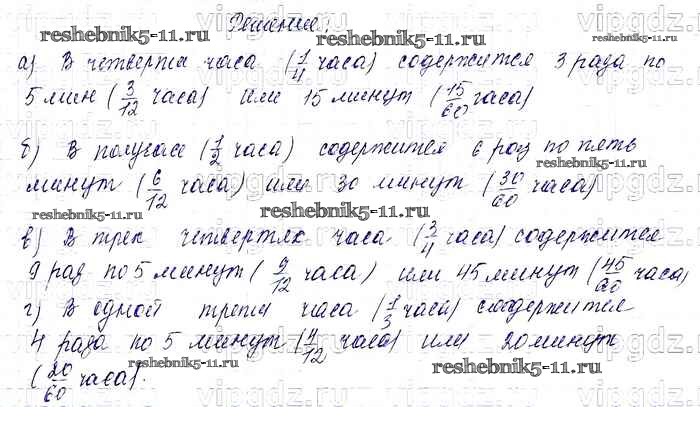 Решение:
reshebnik5-11.ru
reshebnik5-11.ru
а) В четверти часа (1/4 часа) содержится 3 раза по
5 мин (3/12 часа) или 15 минут (15/60 часа)
б) В получасе (1/2 часа) содержится 6 раз по пять
reshebnik5-11.ru
минут (6/12 часа) или 30 минут (30/60 часа)
reshebnik5-11.ru
reshebnik5-11.ru
в) В трех четвертях часа (3/4 часа) содержится
9 раз по 5 минут (9/12 часа) или 45 минут (45/60 часа)
г) В одной трети часа (1/3 часа) содержится
4 раза по 5 минут (4/12 часа) или 20 минут
reshebnik5-11.ru
reshebnik5-11.ru
(20/60 часа).